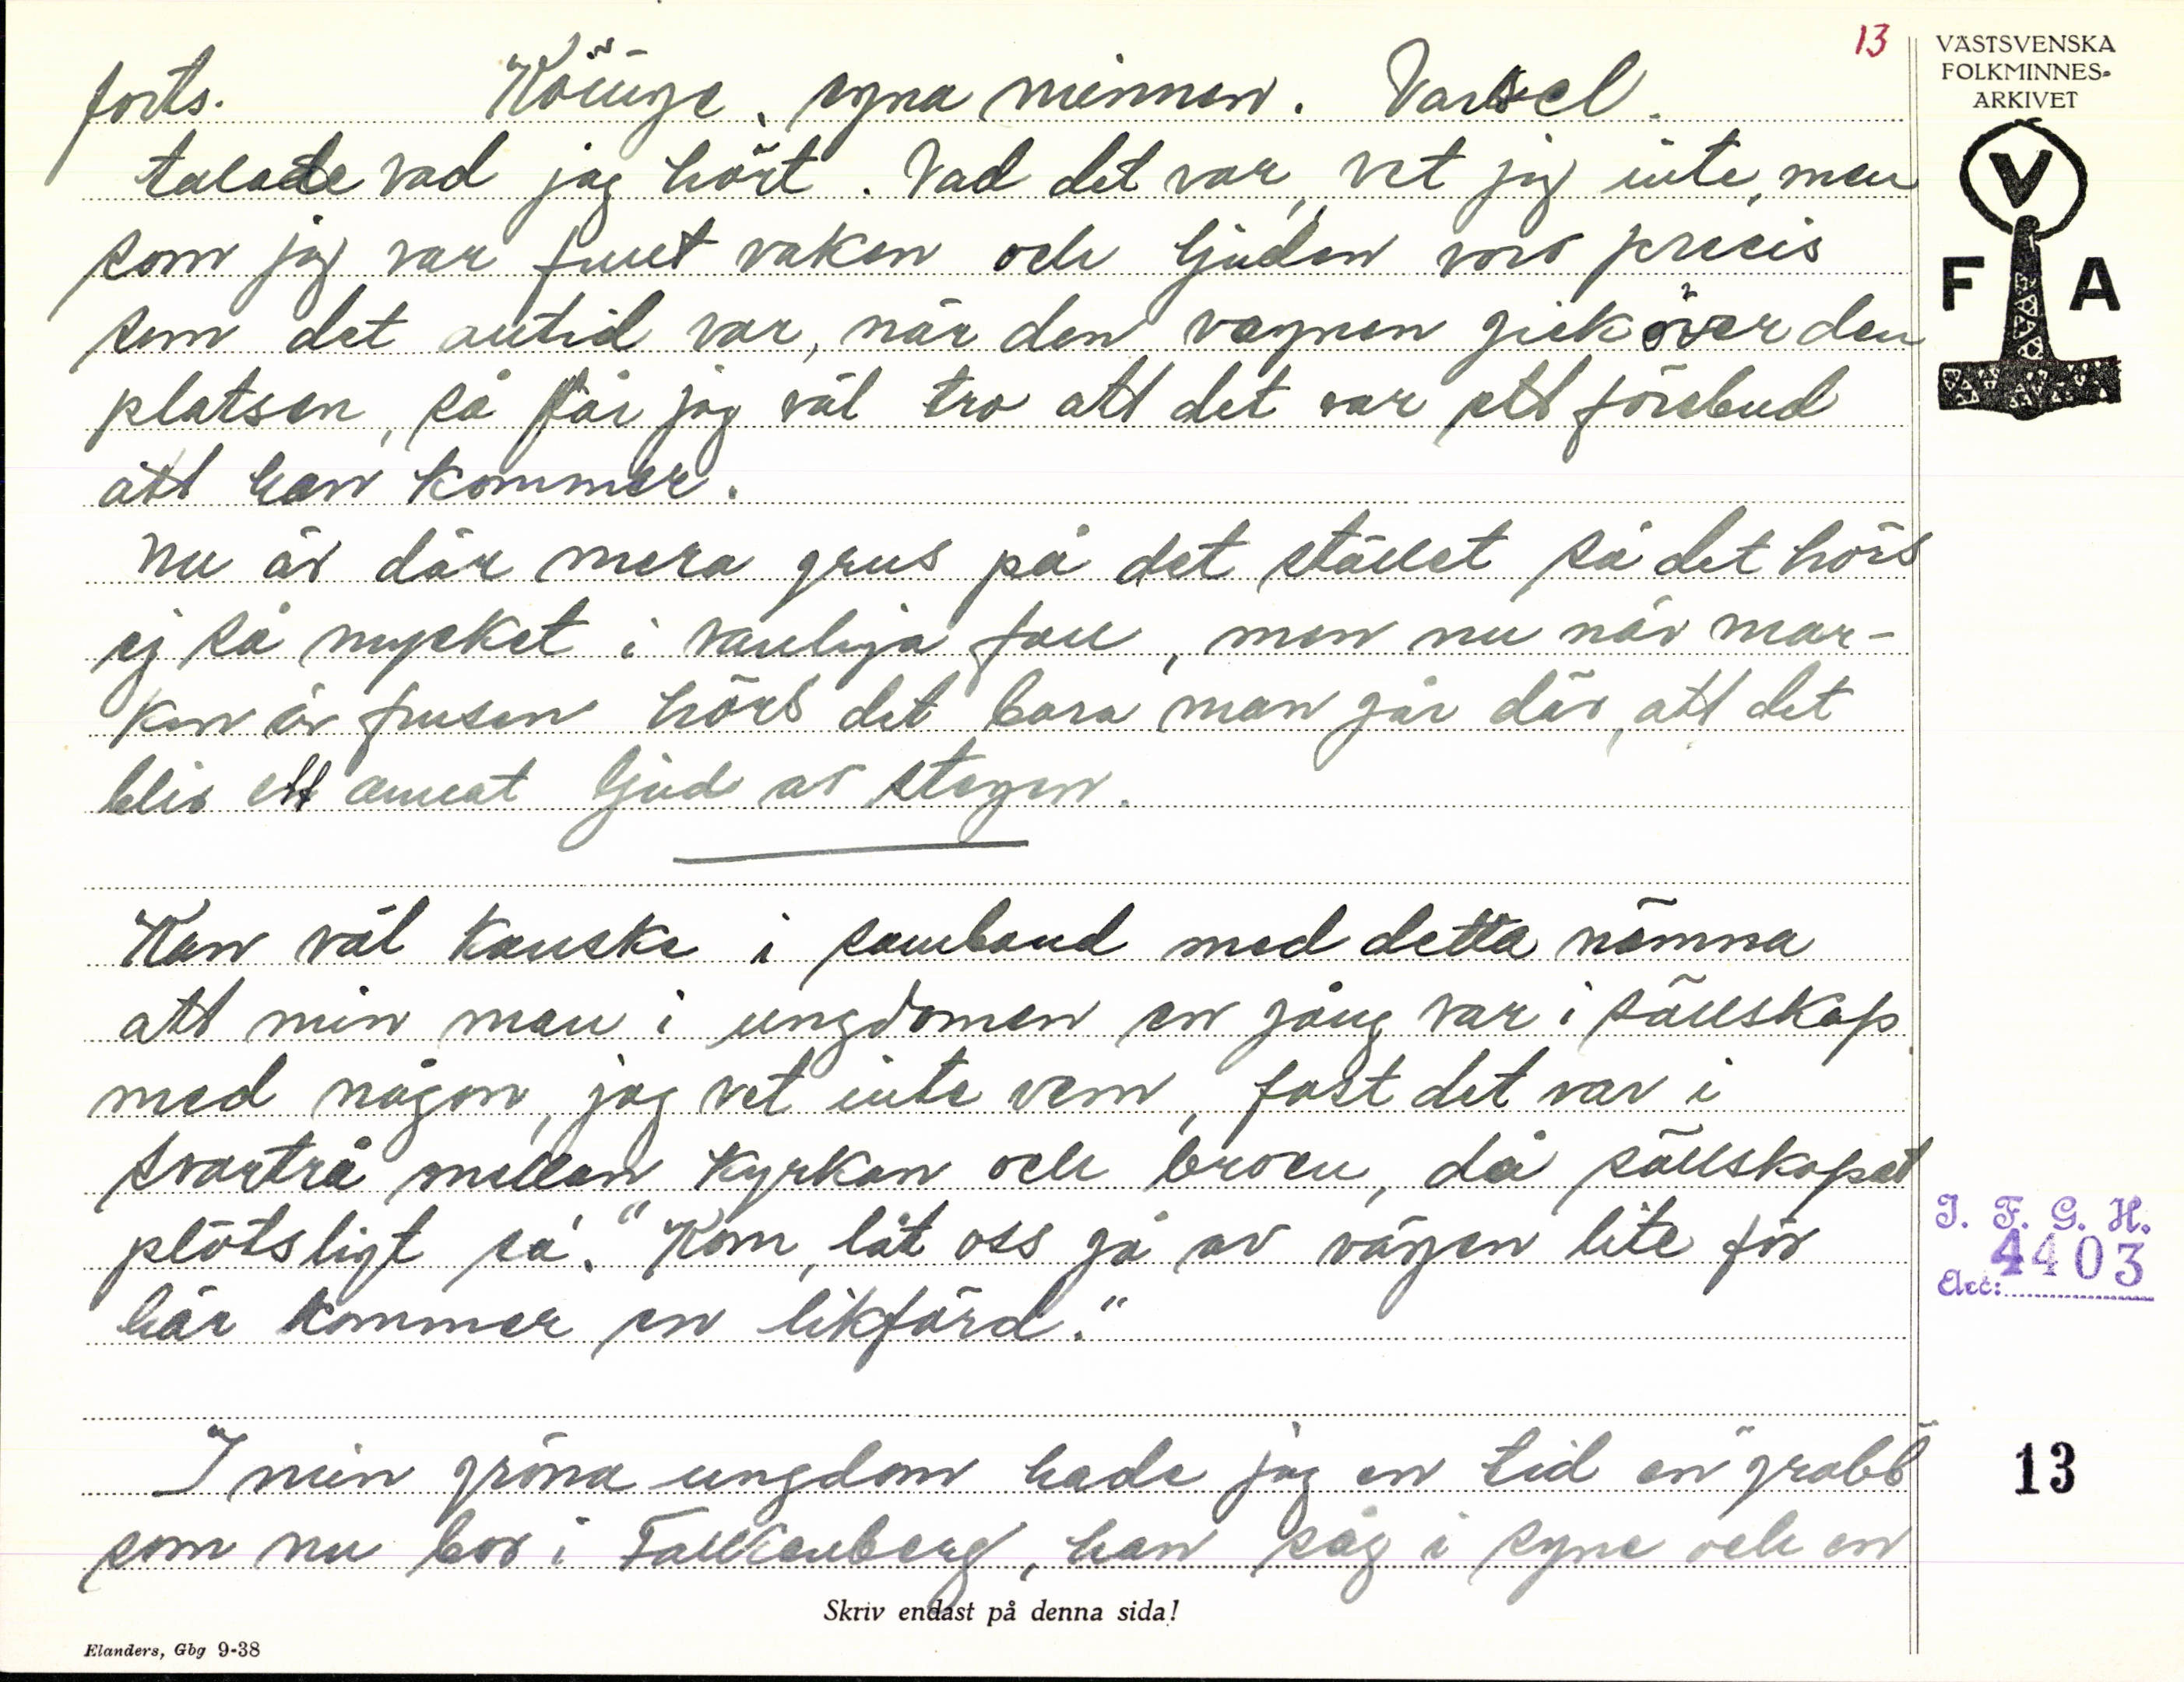 13
VÄSTSVENSKA
FOLKMINNES-
ARKIVET
V
F A
forts. Köinge, egna minnen. Varsel.
talade vad jag hört. Vad det var, vet jag inte, men
som jag var fullt vaken och ljuden voro precis
som det alltid var, när den vagnen gick över den
platsen, så får jag väl tro att det var ett förebud
att han kommer.
Nu är där mera grus på det stället så det hörs
ej så mycket i vanliga fall, men nu när mar-
ken är frusen hörs det bara man går där, att det
blir ett annat ljud av stegen.
Kan väl kanske i samband med detta nämna
att min man i ungdomen en gång var i sällskap
med någon, jag vet inte vem, fast det var i
Svartrå mellan kyrkan och broen, då sällskapet
plötsligt sa: "Kom, låt oss gå av vägen lite för
här kommer en likfärd."
I min gröna ungdom hade jag en tid en "grabb"
som nu bor i Falkenberg, han såg i syne och en
I. F. G. H.
Acc: 4403
13
Skriv endast på denna sida!
Elanders, Gbg 9-38